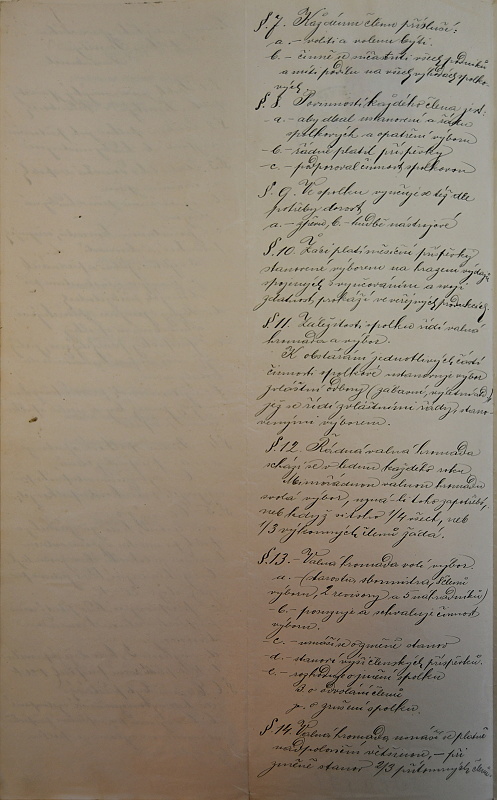 §. 7. Každému členu přísluší:
a. – voliti a volenu býti.
b. – činně se účastniti všech podniků
a míti podílu na všech výhodách spolko-
vých.
§. 8. Povinností každého člena jest:
a. – aby dbal ustanovení a řádu
spolkových a opatření výboru
b. – řádně platil příspěvky
c. – podporoval činnost spolkovou
§. 9. Ve spolku vyučuje se též dle
potřeby dorost
a. – zpěvu, b. – hudbě nástrojové
§. 10. Žáci platí měsíční příspěvky
stanovené výborem na hrazení výdajů
spojených s vyučováním a svoji
zdatnost prokáží ve veřejných produkcích.
§. 11. Záležitosti spolku řídí valná
hromada a výbor.
K obstarání jednotlivých částí
činnosti spolkové ustanovuje výbor
zvláštní odbory (zábavní, výletní atd.)
jež se řídí zvláštními řády, stano-
venými výborem.
§. 12. Řádná valná hromada
schází se v lednu každého roku
Mimořádnou valnou hromadu
svolá výbor, uzná-li toho zapotřebí,
neb když si toho 1/4 všech, neb
1/3 výkonných členů žádá.
§. 13. – Valná hromada volí výbor
a. – (starostu, sbormistra, členů
výboru, 2 revisory a 5 náhradníků)
b. – posuzuje a schvaluje činnost
výboru.
c. – usnáší se o změně stanov
d. – stanoví výši členských příspěvků.
e. – rozhoduje o jmění spolku
3. o odvolání členů
o zrušení spolku.
§ 14. Valná hromada usnáší se platně
nadpoloviční většinou, – při
změně stanov 2/3 přítomných členů